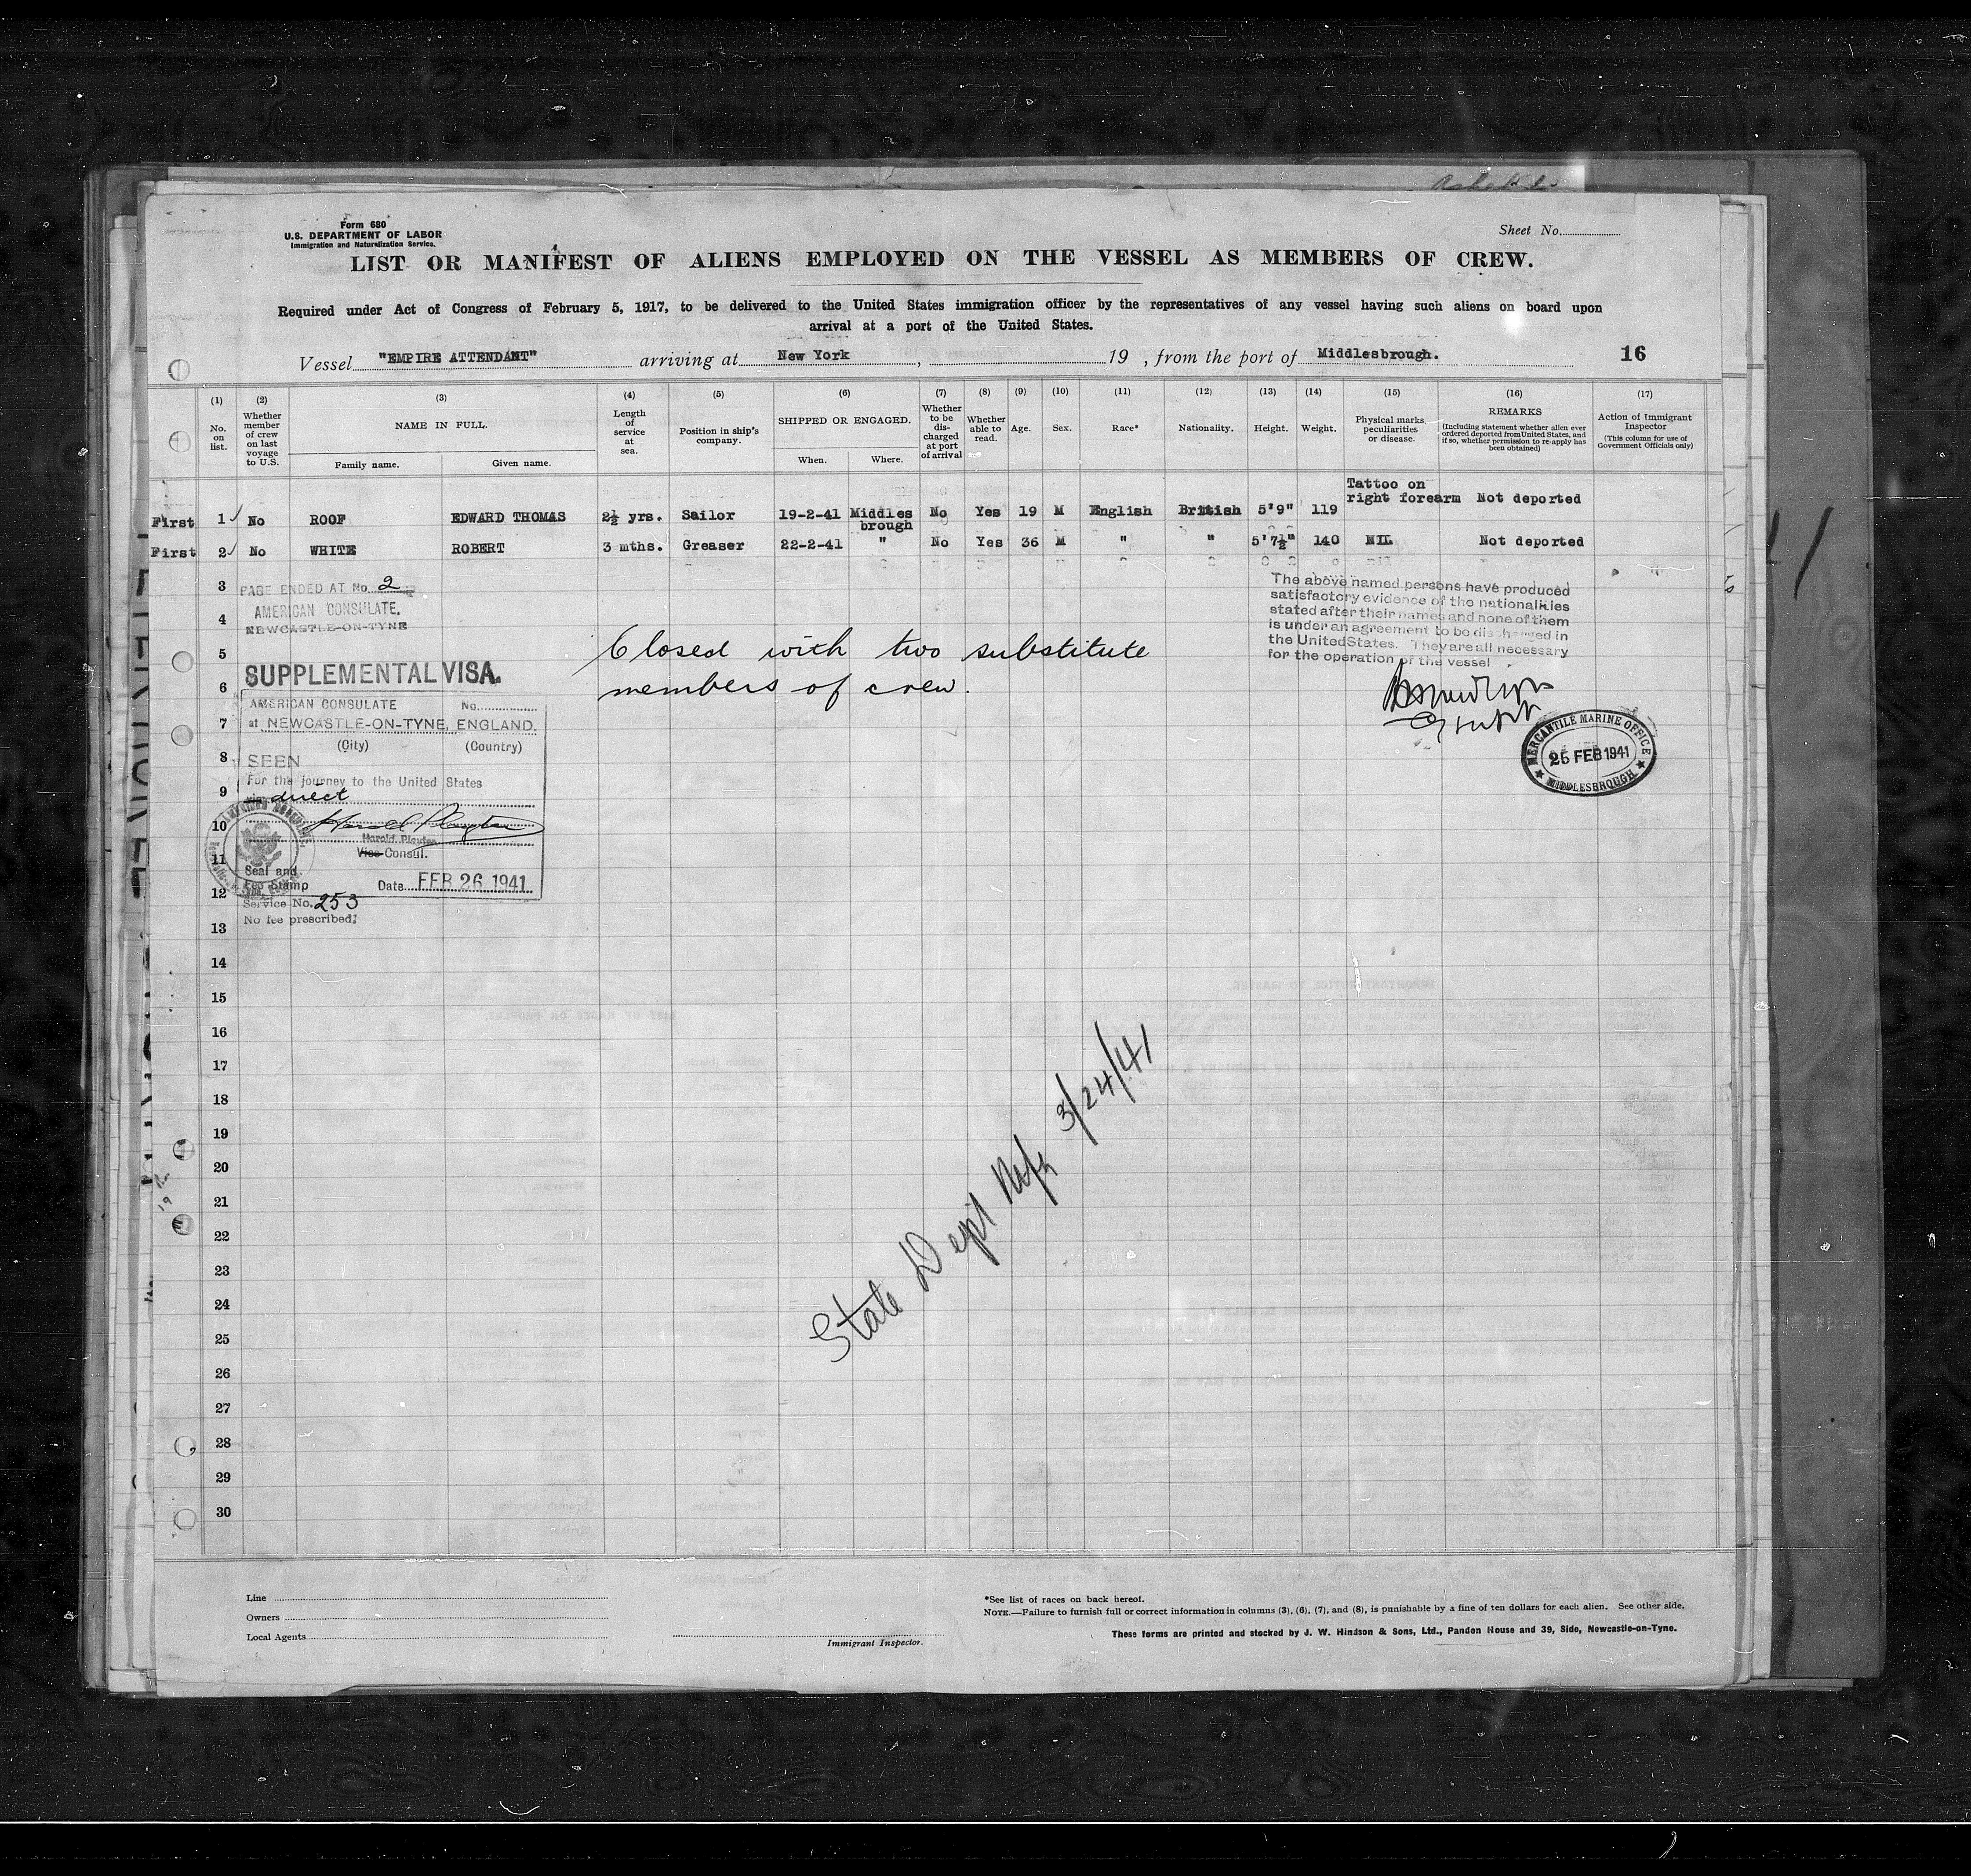 Form 680
U.S. DEPARTMENT OF LABOR
Immigration and Naturalization Service.
Sheet No.
LIST OR MANIFEST OF ALIENS EMPLOYED ON THE VESSEL AS MEMBERS OF CREW.
Required under Act of Congress of February 5, 1917, to be delivered to the United States immigration officer by the representatives of any vessel having such aliens on board upon
arrival at a port of the United States.
Vessel "EMPIRE ATTENDANT" arriving at New York, 19 , from the port of Middlesbrough. 16
(1) No. on list.
(2) Whether member of crew on last voyage to U.S.
(3) NAME IN FULL.
Family name. Given name.
(4) Length of service at sea.
(5) Position in ship's company.
(6) SHIPPED OR ENGAGED.
When. Where.
(7) Whether to be discharged at port of arrival
(8) Whether able to read.
(9) Age.
(10) Sex.
(11) Race*
(12) Nationality.
(13) Height.
(14) Weight.
(15) Physical marks, peculiarities or disease.
(16) REMARKS
(Including statement whether alien ever ordered deported from United States, and if so, whether permission to re-apply has been obtained)
(17) Action of Immigrant Inspector
(This column for use of Government Officials only)
First 1 No ROOF EDWARD THOMAS 2½ yrs. Sailor 19-2-41 Middles brough No Yes 19 M English British 5'9" 119 Tattoo on right forearm Not deported
First 2 No WHITE ROBERT 3 mths. Greaser 22-2-41 " No Yes 36 M " " 5'7½" 140 NIL Not deported
3
4
5
6
7
8
9
10
11
12
13
14
15
16
17
18
19
20
21
22
23
24
25
26
27
28
29
30
PAGE ENDED AT No. 2
AMERICAN CONSULATE,
NEWCASTLE-ON-TYNE
SUPPLEMENTAL VISA.
AMERICAN CONSULATE No.
at NEWCASTLE-ON-TYNE, ENGLAND.
(City) (Country)
SEEN
For the journey to the United States
via direct
Harold Playter
Vice Consul.
Seal and
Fee Stamp
Date FEB 26 1941
Service No. 253
No fee prescribed.
Closed with two substitute
members of crew.
The above named persons have produced
satisfactory evidence of the nationalities
stated after their names and none of them
is under an agreement to be discharged in
the United States. They are all necessary
for the operation of the vessel
MERCANTILE MARINE OFFICE
25 FEB 1941
MIDDLESBROUGH
State Dept 3/24/41
Line
Owners
Local Agents
Immigrant Inspector.
*See list of races on back hereof.
NOTE.—Failure to furnish full or correct information in columns (3), (6), (7), and (8), is punishable by a fine of ten dollars for each alien. See other side.
These forms are printed and stocked by J. W. Hindson & Sons, Ltd., Pandon House and 39, Side, Newcastle-on-Tyne.